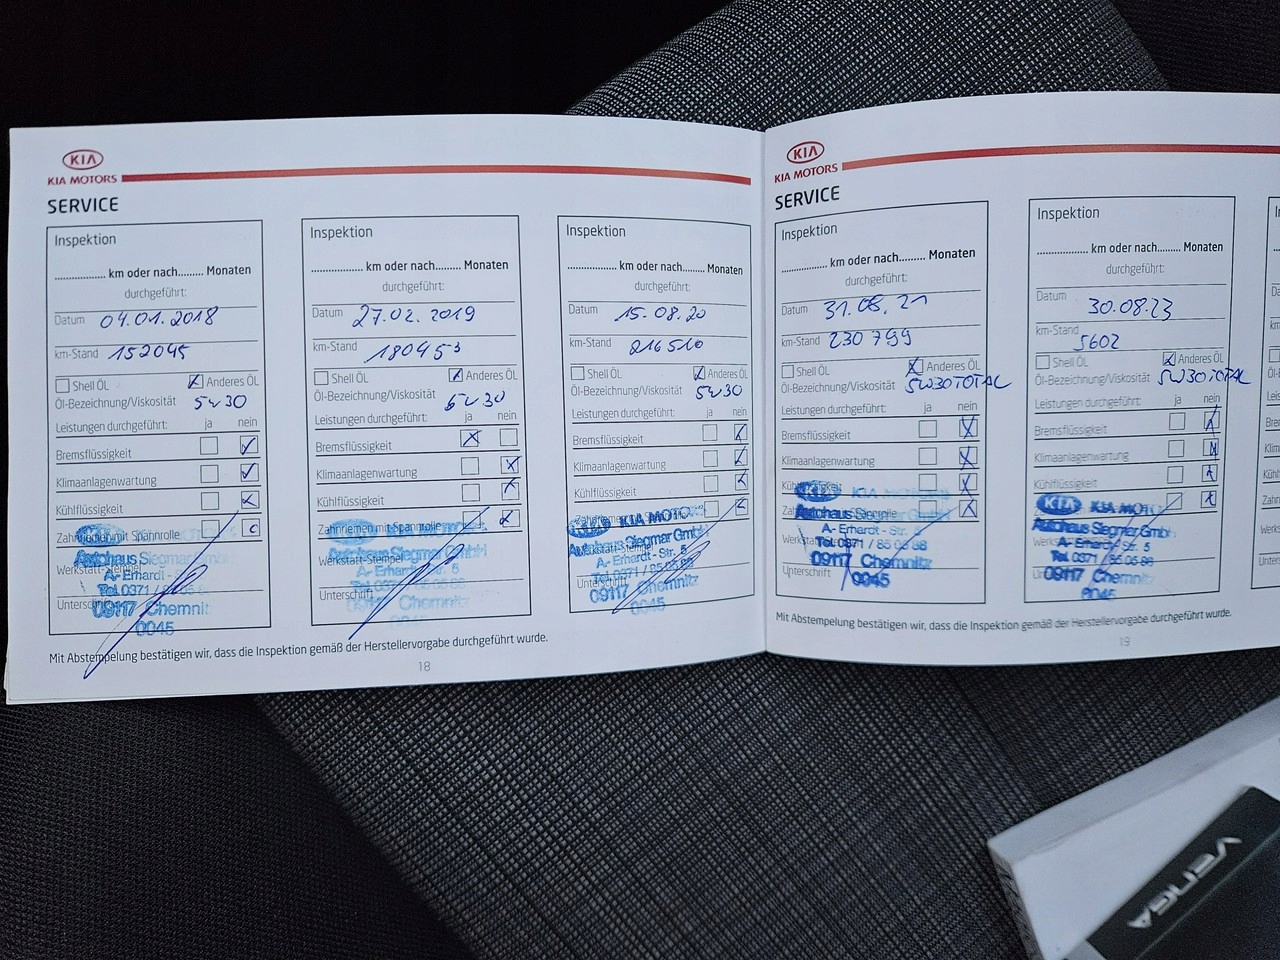 KIA
KIA MOTORS
SERVICE
Inspektion
km oder nach......... Monaten
durchgeführt:
Datum 04.01.2018
km-Stand 152045
Shell ÖL Anderes ÖL
Öl-Bezeichnung/Viskosität
5W30
Leistungen durchgeführt: ja nein
Bremsflüssigkeit
Klimaanlagenwartung
Kühlflüssigkeit
Zahnriemen mit Spannrolle
Autohaus Siegmar GmbH
Werkstatt-Stempel
A.- Erhardt -
Tel. 0371
Unterschrift
09117 Chemnit
0045
Inspektion
km oder nach......... Monaten
durchgeführt:
Datum 27.02.2019
km-Stand 180453
Shell ÖL Anderes ÖL
Öl-Bezeichnung/Viskosität
5W30
Leistungen durchgeführt: ja nein
Bremsflüssigkeit
Klimaanlagenwartung
Kühlflüssigkeit
Zahnriemen mit Spannrolle
Autohaus Siegmar GmbH
Werkstatt-Stempel
A.- Erhardt - Str. 5
Unterschrift
09117 Chemnitz
Inspektion
km oder nach......... Monaten
durchgeführt:
Datum 15.08.20
km-Stand 216510
Shell ÖL Anderes ÖL
Öl-Bezeichnung/Viskosität
5W30
Leistungen durchgeführt: ja nein
Bremsflüssigkeit
Klimaanlagenwartung
Kühlflüssigkeit
KIA MOTO
Autohaus Siegmar GmbH
Werkstatt-Stempel
A.- Erhardt - Str. 5
09117 Chemnitz
0045
Mit Abstempelung bestätigen wir, dass die Inspektion gemäß der Herstellervorgabe durchgeführt wurde.
18
KIA
KIA MOTORS
SERVICE
Inspektion
km oder nach......... Monaten
durchgeführt:
Datum 31.08.21
km-Stand 230 799
Shell ÖL Anderes ÖL
Öl-Bezeichnung/Viskosität 5W30TOTAL
Leistungen durchgeführt: ja nein
Bremsflüssigkeit
Klimaanlagenwartung
KIA MOTORS
Autohaus Siegmar
A.- Erhardt - Str. 5
Tel. 0371 / 85 05 88
09117 Chemnitz
Unterschrift
0045
Inspektion
km oder nach......... Monaten
durchgeführt:
Datum 30.08.23
km-Stand
5602
Shell ÖL Anderes ÖL
Öl-Bezeichnung/Viskosität 5W30TOTAL
Leistungen durchgeführt: ja nein
Bremsflüssigkeit
Klimaanlagenwartung
Kühlflüssigkeit
KIA MOTO
Autohaus Siegmar GmbH
A.- Erhardt - Str. 5
09117 Chemnitz
0045
Mit Abstempelung bestätigen wir, dass die Inspektion gemäß der Herstellervorgabe durchgeführt wurde.
19
VENGA